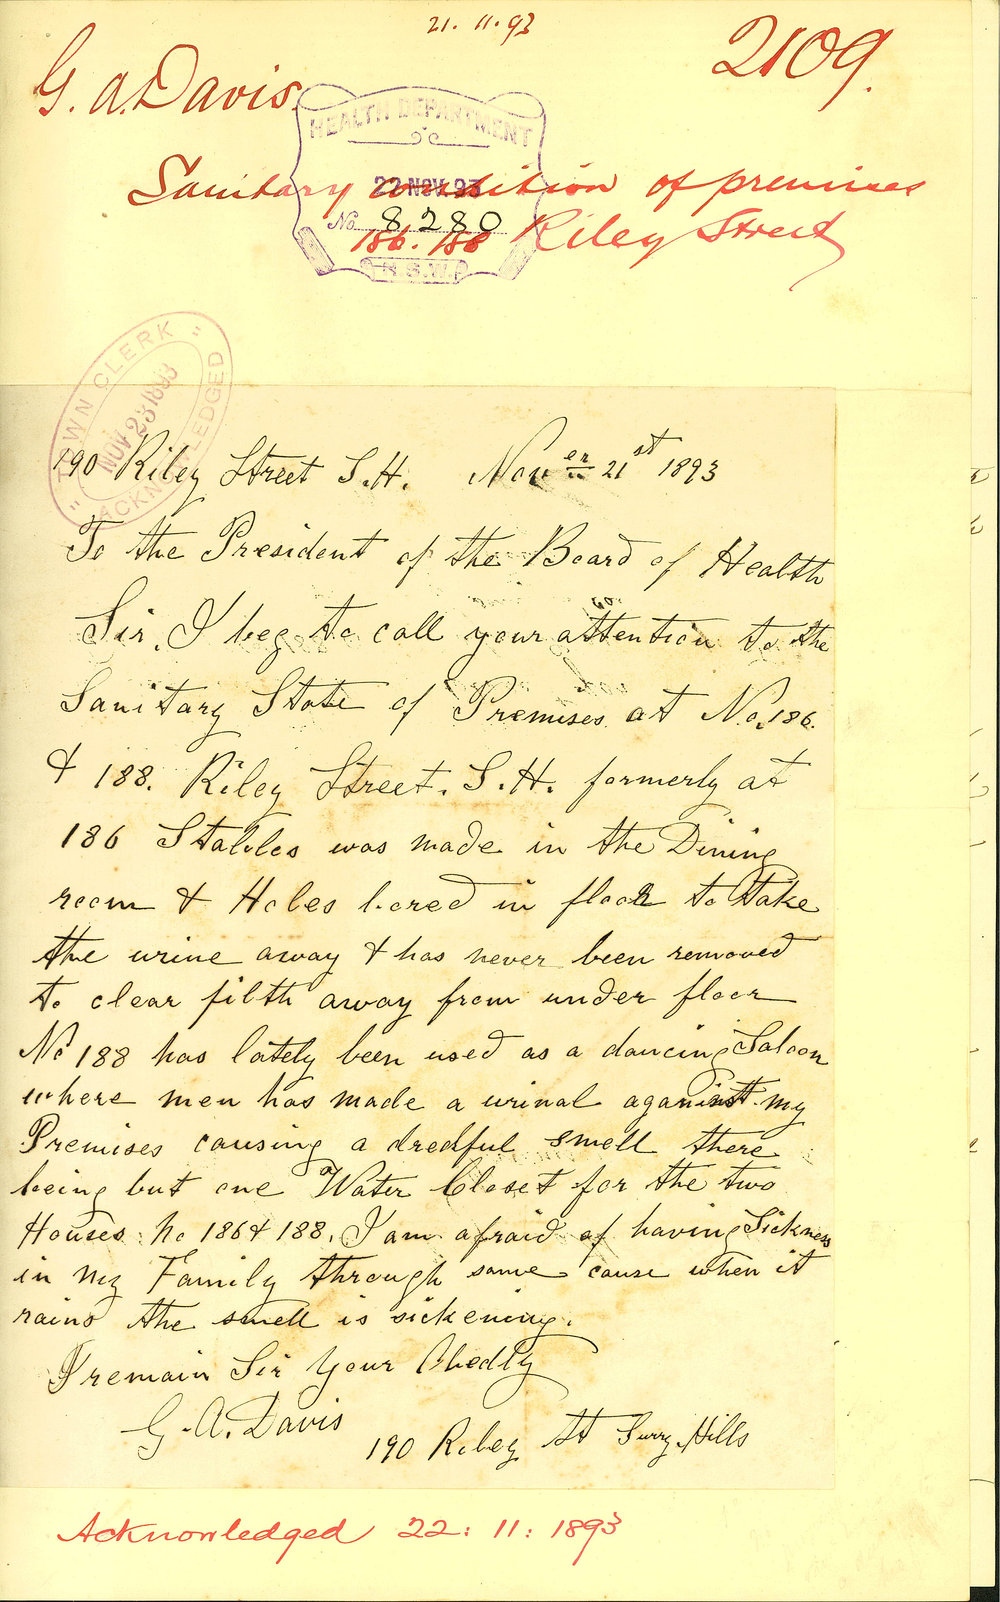 21. 11. 93
G. A. Davis.
2109.
HEALTH DEPARTMENT
22 NOV. 93
No. 8280
N.S.W.
Sanitary condition of premises
186. 188 Riley Street
TOWN CLERK
NOV 23 1893
ACKNOWLEDGED
190 Riley Street S.H. Nov er 21st 1893
To the President of the Board of Health
Sir, I beg to call your attention to the
Sanitary State of Premises at No. 186.
& 188. Riley Street. S.H. formerly at
186 Stables was made in the Dining
room & Holes bored in floor to take
the urine away & has never been removed
to clear filth away from under floor
No 188 has lately been used as a dancing Saloon
where men has made a urinal against my
Premises causing a dredful smell there
being but one Water Closet for the two
Houses No 186 & 188. I am afraid of having Sickness
in my Family through same cause when it
rains the smell is sickening.
I remain Sir Your Obedly
G. A. Davis
190 Riley St Surry Hills
Acknowledged 22: 11: 1893